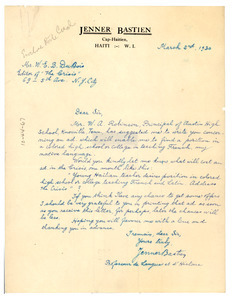 Inclose Rate Card
JENNER BASTIEN
Cap-Haitien,
HAITI - W. I.
March 2nd 1930
Mr. W. E. B. DuBois
Editor of "The Crisis"
69 - 5th Ave N.Y. City
Dear Sir,
Mr. W. A. Robinson, Principal of Austin High
School, Knoxville Tenn, has suggested me to write you concer-
ning an ad. which will enable me to find a position in
a Colored high school or College in teaching French, my
native language.
Would you kindly let me know what will cost an
ad in the Crisis, one month like this:
Young Haitian teacher desires position in colored
high school or College teaching French and Latin. Address
the Crisis - ?
If you think there is any chance of success either
way, I would be very grateful to you in printing that ad. as soon
as you receive this letter for perhaps later the chances will
be less.
Hoping you will favor me with a line and
thanking you in advance.
I remain, Dear Sir,
Yours truly,
Jenner Bastien